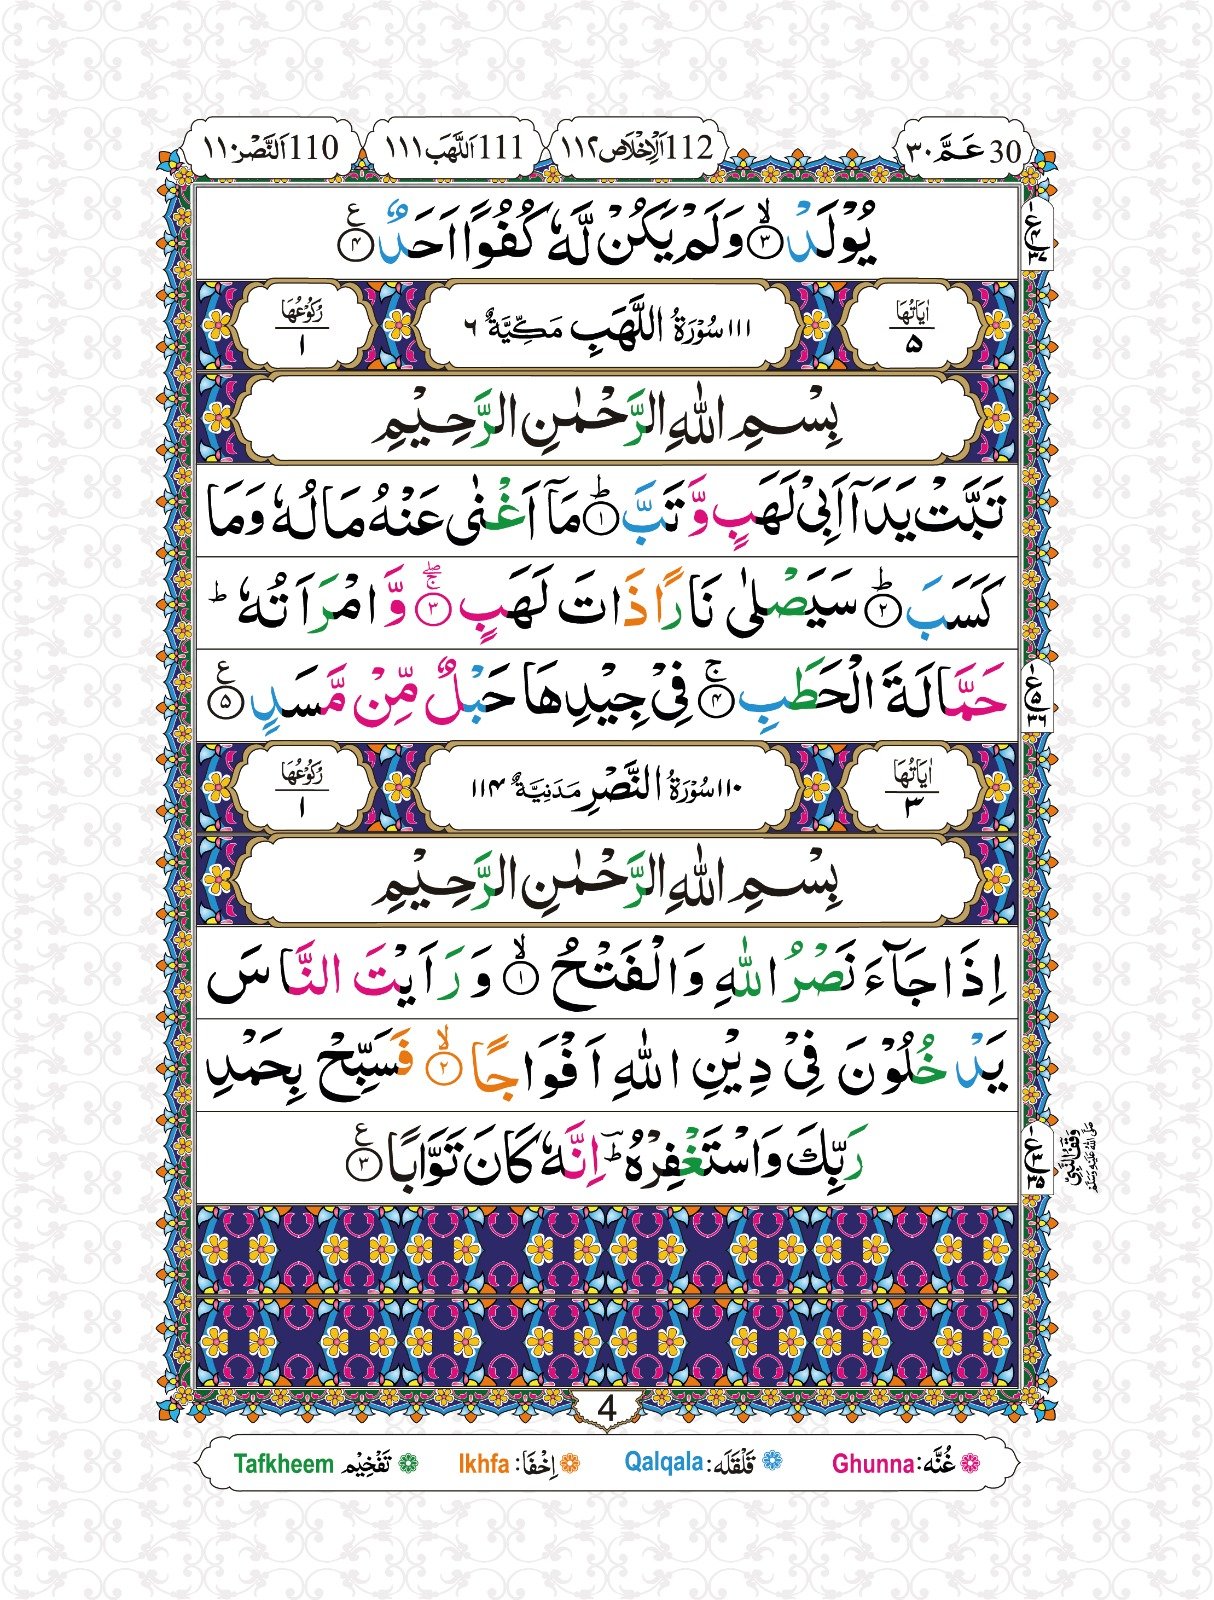 30 عَمَّ ٣٠
112 اَلْاِخْلَاص ١١٢
111 اَللَّهَب ١١١
110 اَلنَّصْر ١١٠
يُوْلَدْ ۙ﴿٣﴾ وَلَمْ يَكُنْ لَّهٗ كُفُوًا اَحَدٌ ﴿٤﴾ ع
اٰيَاتُهَا ٥
١١١ سُوْرَةُ اللَّهَبِ مَكِّيَّةٌ ٦
رُكُوْعُهَا ١
بِسْمِ اللّٰهِ الرَّحْمٰنِ الرَّحِيْمِ
تَبَّتْ يَدَاۤ اَبِيْ لَهَبٍ وَّ تَبَّ ؕ﴿١﴾ مَاۤ اَغْنٰى عَنْهُ مَالُهٗ وَمَا
كَسَبَ ؕ﴿٢﴾ سَيَصْلٰى نَارًا ذَاتَ لَهَبٍ ۚۖ﴿٣﴾ وَّ امْرَاَتُهٗ ؕ
حَمَّالَةَ الْحَطَبِ ۚ﴿٤﴾ فِيْ جِيْدِهَا حَبْلٌ مِّنْ مَّسَدٍ ﴿٥﴾ ع
اٰيَاتُهَا ٣
١١٠ سُوْرَةُ النَّصْرِ مَدَنِيَّةٌ ١١٤
رُكُوْعُهَا ١
بِسْمِ اللّٰهِ الرَّحْمٰنِ الرَّحِيْمِ
اِذَا جَآءَ نَصْرُ اللّٰهِ وَالْفَتْحُ ۙ﴿١﴾ وَ رَاَيْتَ النَّاسَ
يَدْخُلُوْنَ فِيْ دِيْنِ اللّٰهِ اَفْوَاجًا ۙ﴿٢﴾ فَسَبِّحْ بِحَمْدِ
رَبِّكَ وَاسْتَغْفِرْهُ ؔؕ اِنَّهٗ كَانَ تَوَّابًا ﴿٣﴾ ع
وَقْفُ النَّبِيِّ صَلَّى اللّٰهُ عَلَيْهِ وَسَلَّمَ
4
غُنَّه: Ghunna
قَلْقَلَه: Qalqala
اِخْفَا: Ikhfa
تَفْخِيْم Tafkheem